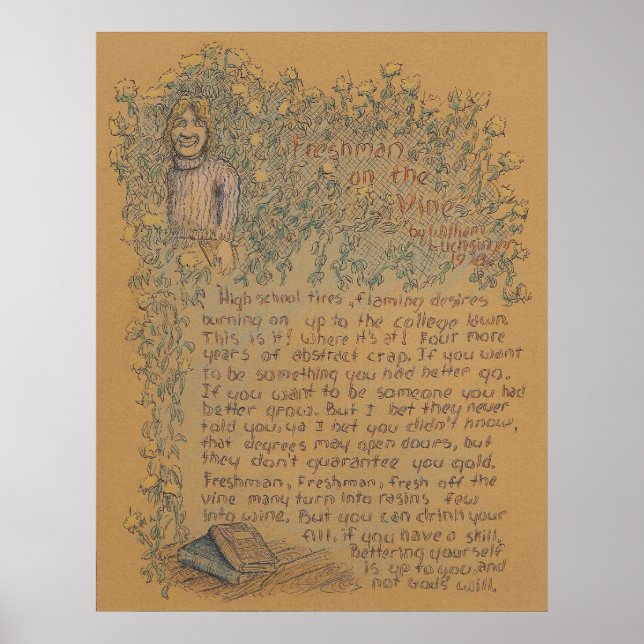 "Freshman
on the
Vine"
by William
1978
High school tires, flaming desires
burning on up to the college lawn.
This is it! Where it's at! Four more
years of abstract crap. If you want
to be something you had better go.
If you want to be someone you had
better grow. But I bet they never
told you, ya I bet you didn't know,
that degrees may open doors, but
they don't guarantee you gold.
Freshman, Freshman, fresh off the
vine many turn into rasins few
into wine. But you can drink your
fill, if you have a skill.
Bettering yourself
is up to you, and
not Gods will.